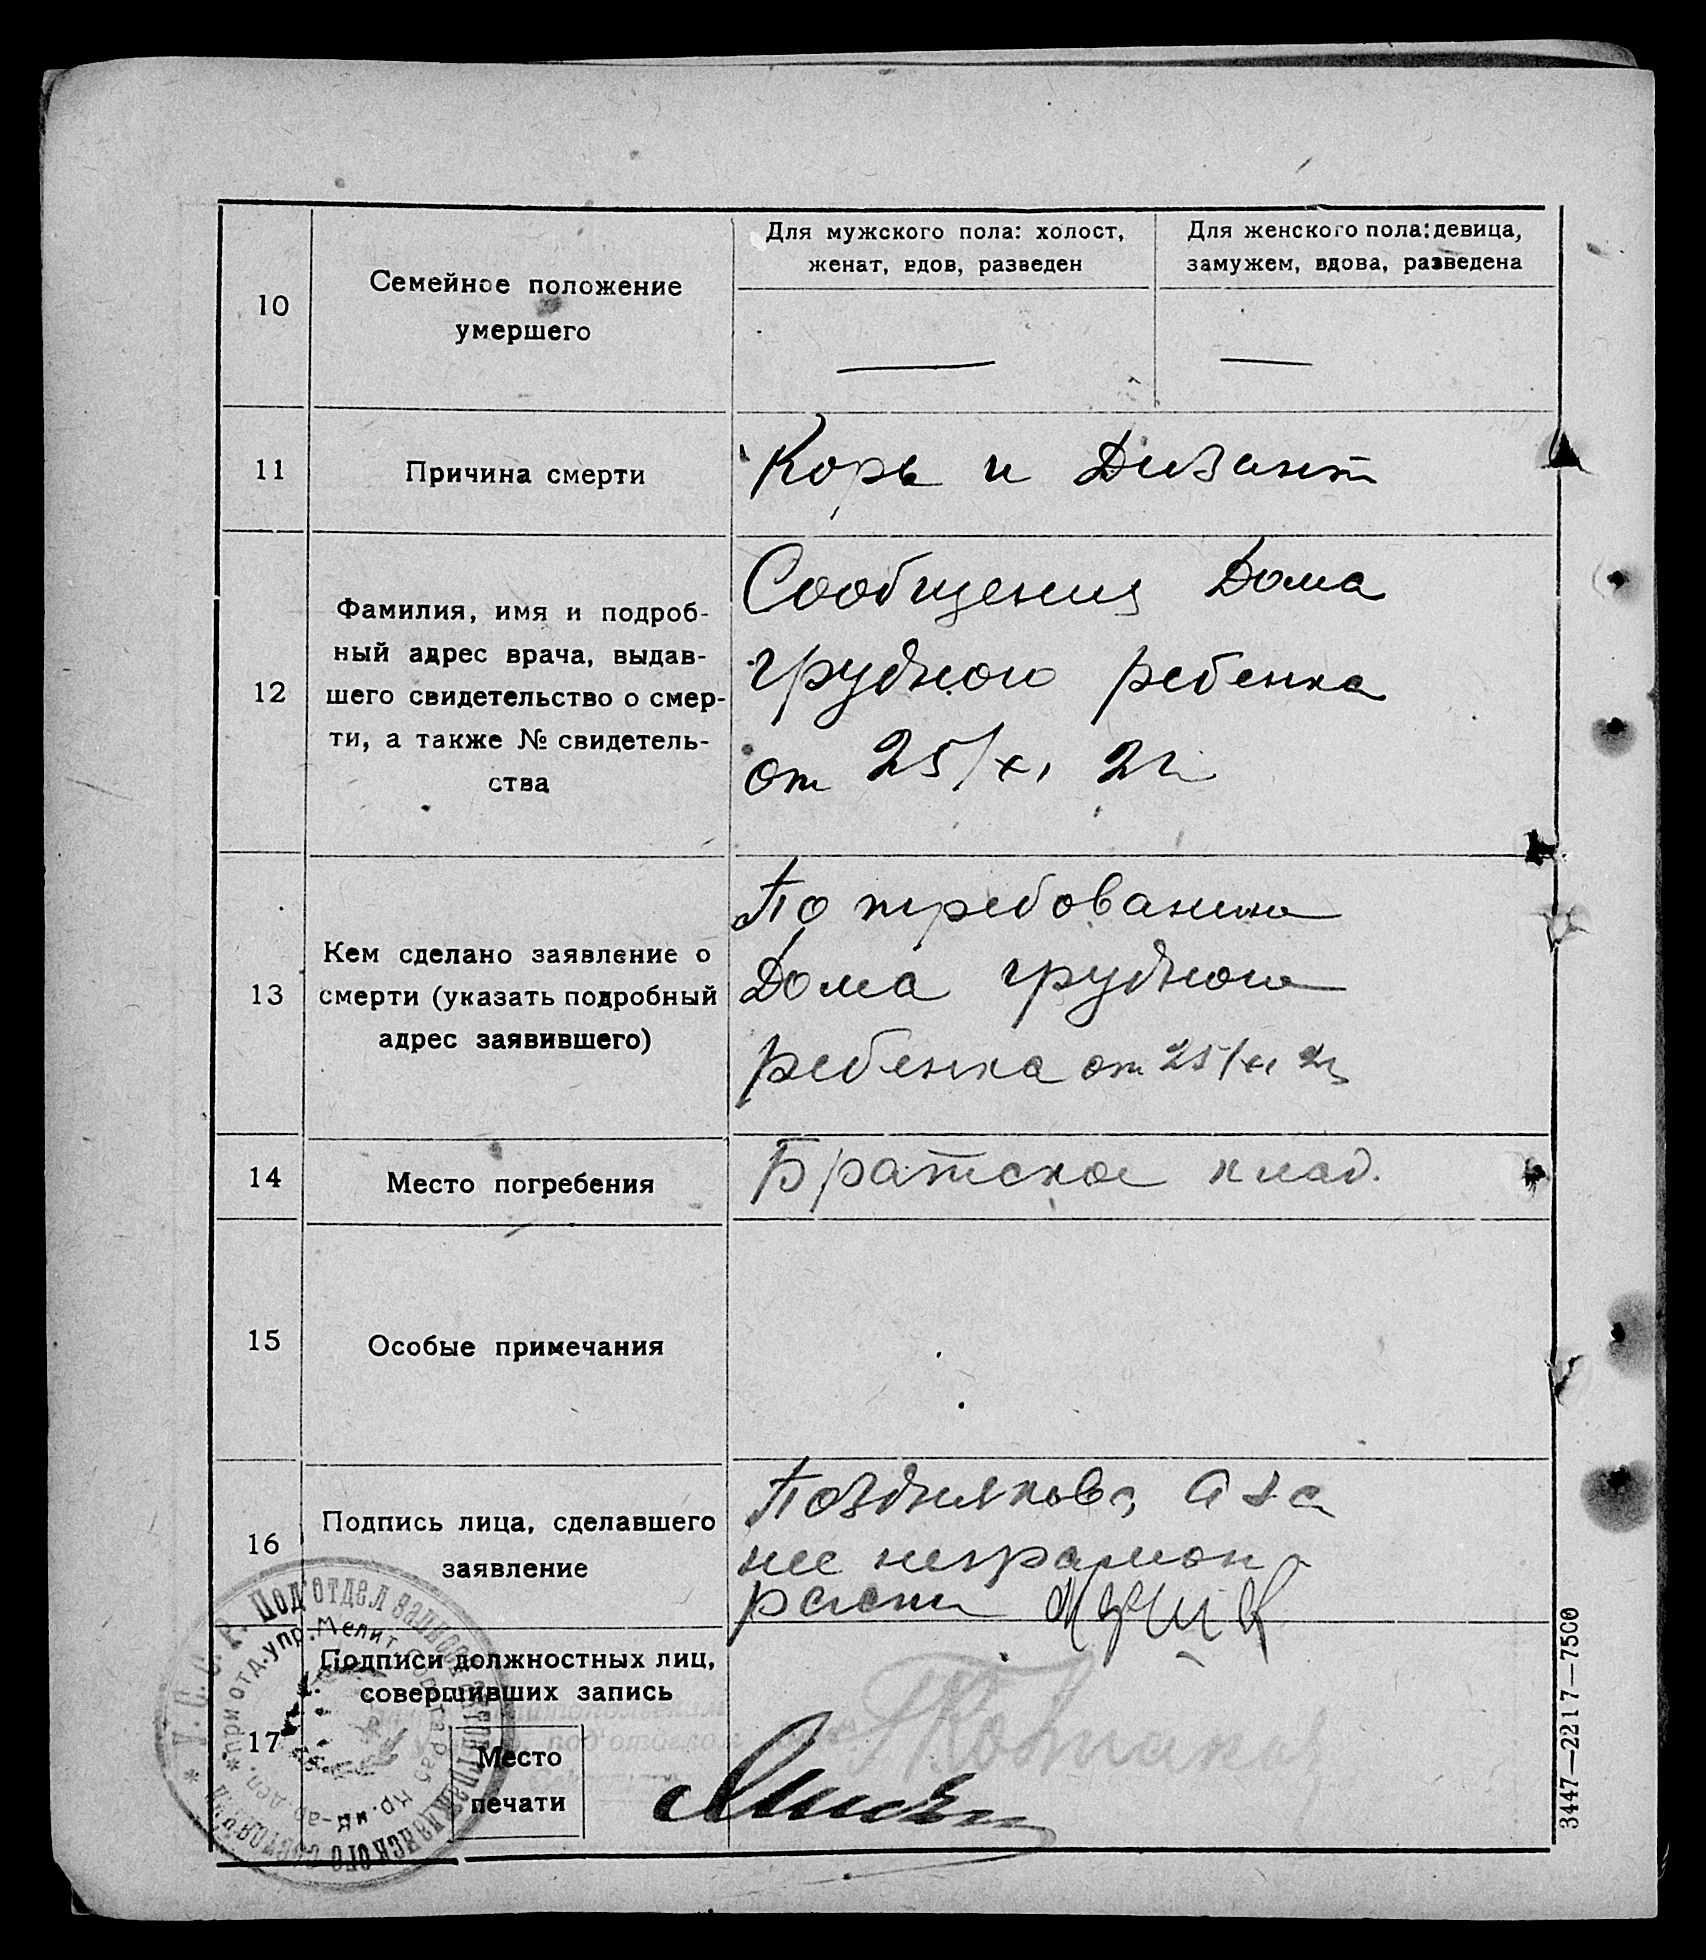 10
Семейное положение
умершего
Для мужского пола: холост,
женат, вдов, разведен
Для женского пола: девица,
замужем, вдова, разведена
11
Причина смерти
Корь и Дизент
12
Фамилия, имя и подроб-
ный адрес врача, выдав-
шего свидетельство о смер-
ти, а также № свидетель-
ства
Сообщения Дома
грудного ребенка
от 25/XI 2г
13
Кем сделано заявление о
смерти (указать подробный
адрес заявившего)
По требованию
Дома грудного
ребенка от 25/XI 2г
14
Место погребения
Братское клад.
15
Особые примечания
16
Подпись лица, сделавшего
заявление
Позднякова, а за
нее неграмотн
17
Подписи должностных лиц,
совершивших запись
Место
печати
У. С. С. Р. Под'отдел записей
гражданского состояния
при отд. упр. Мелит
3447—2217—7500